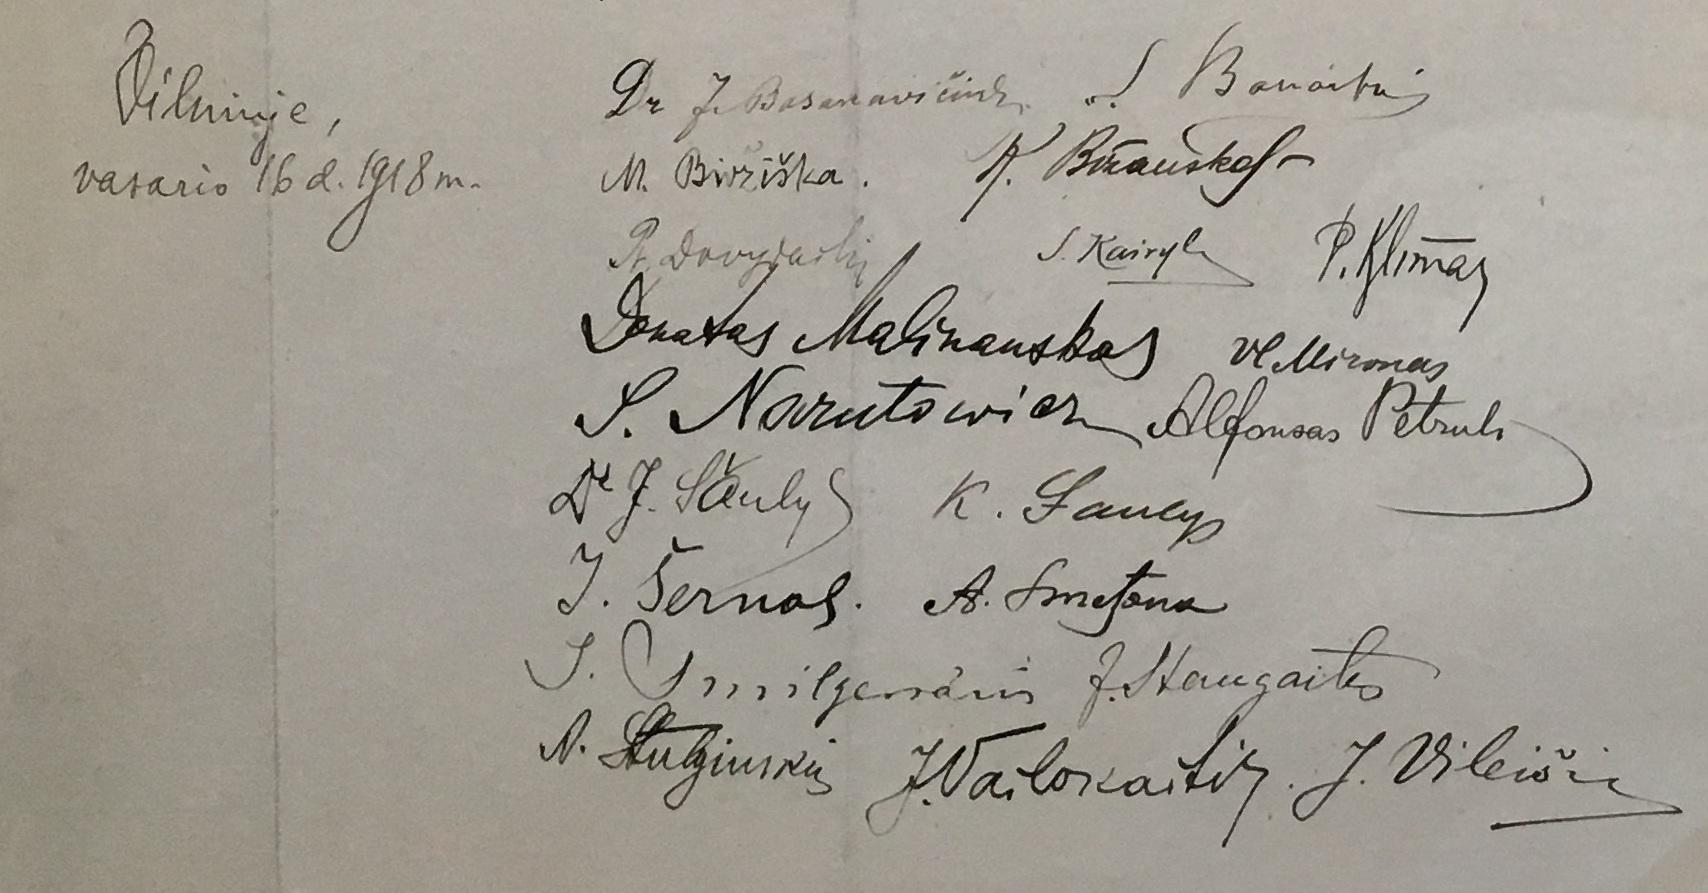 Vilniuje,
vasario 16 d. 1918 m.
Dr J. Basanavičius. S. Banaitis
M. Biržiška. K. Bizauskas
Pr. Dovydaitis S. Kairys P. Klimas
Donatas Malinauskas Vl Mironas
S. Narutowicz Alfonsas Petrulis
Dr J. Šaulys K. Šaulys
J. Šernas. A. Smetona
J. Smilgevičius J. Staugaitis
A. Stulginskis J. Vailokaitis. J. Vileišis